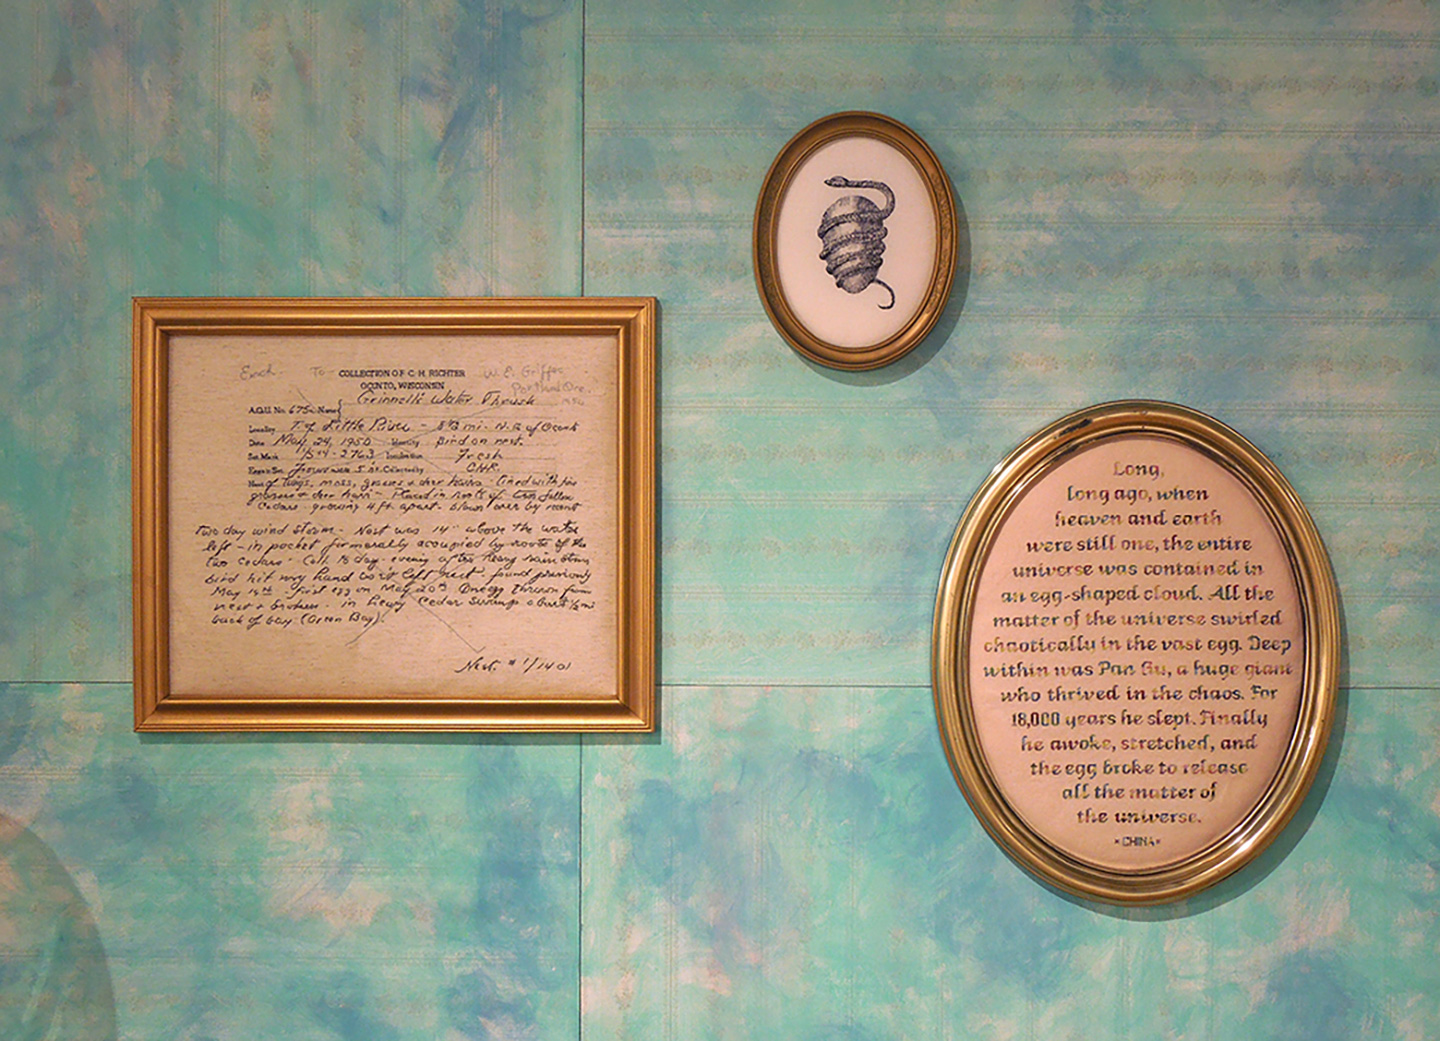 Exch. To COLLECTION OF C. H. RICHTER W. E. Griffee
OCONTO, WISCONSIN Portland Ore.
Grinnell's Water Thrush
A.O.U. No. 675a Name
Locality T. of Little River - N. E. of Oconto
Date May 24, 1950 Identity Bird on nest.
Set Mark Incubation Fresh
Collected by CHR.
Nest of twigs, moss, grasses & deer hairs. Lined with fine
grasses & deer hair - Placed in roots of two fallen
Cedars growing 4 ft. apart - blown over by recent
Two day wind storm - Nest was 14" above the water
left - in pocket formerally occupied by roots of the
two cedars - Coll. evening after heavy rain storm
bird hit my hand as it left nest - found previously
May 18th - first egg on May 20th One egg thrown from
nest & broken - in heavy Cedar swamp about ½ mi
back of bay (Green Bay).
Nest.
Long,
long ago, when
heaven and earth
were still one, the entire
universe was contained in
an egg-shaped cloud. All the
matter of the universe swirled
chaotically in the vast egg. Deep
within was Pan Gu, a huge giant
who thrived in the chaos. For
18,000 years he slept. Finally
he awoke, stretched, and
the egg broke to release
all the matter of
the universe.
*CHINA*